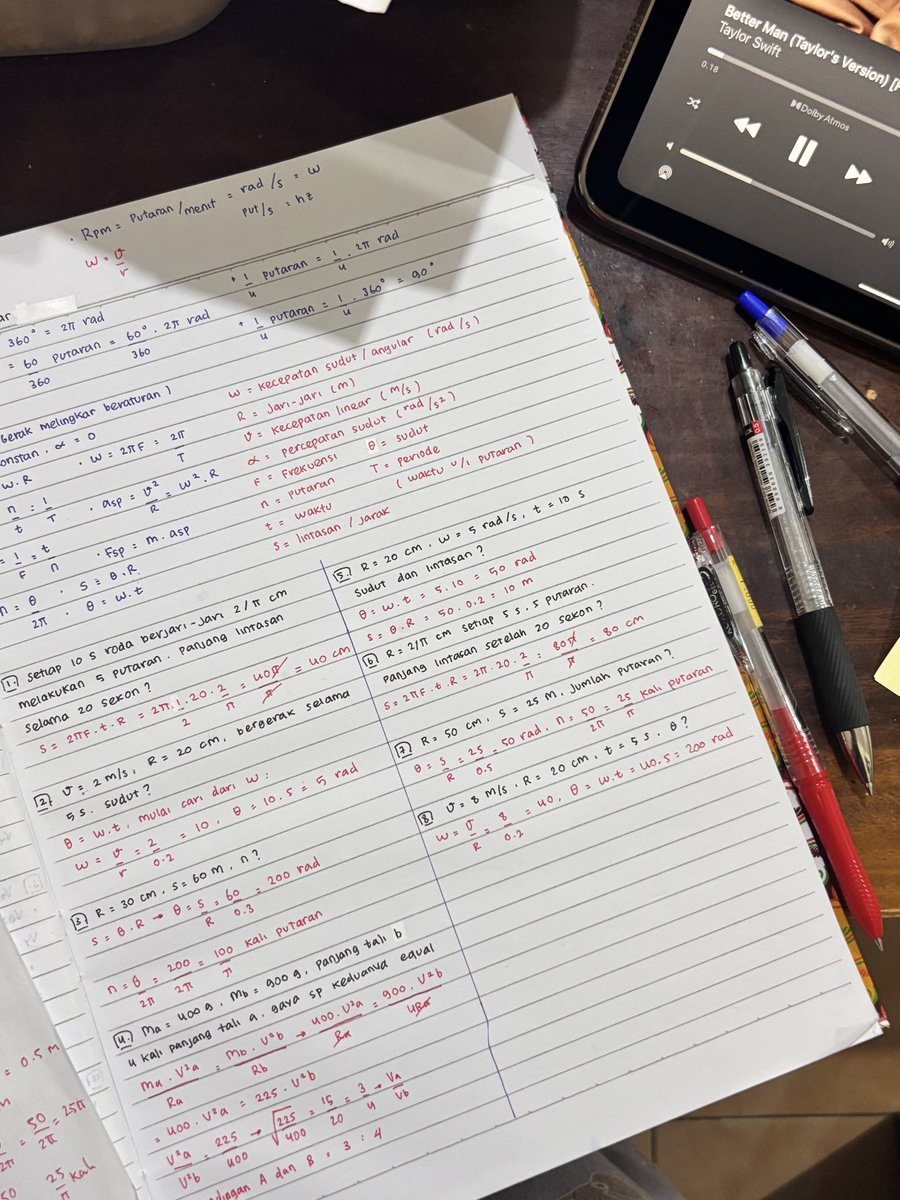 Better Man (Taylor's Version) [
Taylor Swift
0.18
Dolby Atmos
• Rpm = Putaran/menit = rad/s = w
put/s = hz
w = v/r
ar
360° = 2π rad
= 60/360 putaran = 60°/360 . 2π rad
+ 1/4 putaran = 1/4 . 2π rad
+ 1/4 putaran = 1/4 . 360° = 90°
gerak melingkar beraturan)
onstan . α = 0
w.R
• w = 2πF = 2π/T
n/t = 1/T
• asp = v²/R = w².R
= 1/F = t/n
• Fsp = m.asp
n = θ/2π
• S = θ.R
• θ = w.t
w = kecepatan sudut/angular (rad/s)
R = jari-jari (m)
v = kecepatan linear (m/s)
α = percepatan sudut (rad/s²)
F = Frekuensi θ = sudut
n = putaran T = periode
t = waktu (waktu u/1 putaran)
s = lintasan / jarak
1. setiap 10 s roda berjari-jari 2/π cm
melakukan 5 putaran. Panjang lintasan
selama 20 sekon?
s = 2πF.t.R = 2π.1/2.20.2/π = 40π/π = 40 cm
2. v = 2 m/s, R = 20 cm, bergerak selama
5 s. sudut?
θ = w.t, mulai cari dari w:
w = v/r = 2/0.2 = 10, θ = 10.5 = 5 rad
3. R = 30 cm, s = 60 m, n?
s = θ.R → θ = s/R = 60/0.3 = 200 rad
n = θ/2π = 200/2π = 100/π kali putaran
4. Ma = 400 g, Mb = 900 g, panjang tali b
4 kali panjang tali a. gaya sp keduanya equal
Ma.V²a/Ra = Mb.V²b/Rb → 400.V²a/Ra = 900.V²b/4Ra
= 400.V²a = 225.V²b
V²a/V²b = 225/400 → √225/400 = 15/20 = 3/4 → Va/Vb
dingan A dan B = 3 : 4
5. R = 20 cm, w = 5 rad/s, t = 10 s
sudut dan lintasan?
θ = w.t = 5.10 = 50 rad
s = θ.R = 50.0.2 = 10 m
6. R = 2/π cm setiap 5 s. 5 putaran.
Panjang lintasan setelah 20 sekon?
s = 2πF.t.R = 2π.20.2/π = 80π/π = 80 cm
7. R = 50 cm, s = 25 m, jumlah putaran?
θ = s/R = 25/0.5 = 50 rad, n = 50/2π = 25/π kali putaran
8. v = 8 m/s, R = 20 cm, t = 5 s, θ?
w = v/R = 8/0.2 = 40, θ = w.t = 40.5 = 200 rad
= 0.5 m
= 50/2π = 25π
25/π kali